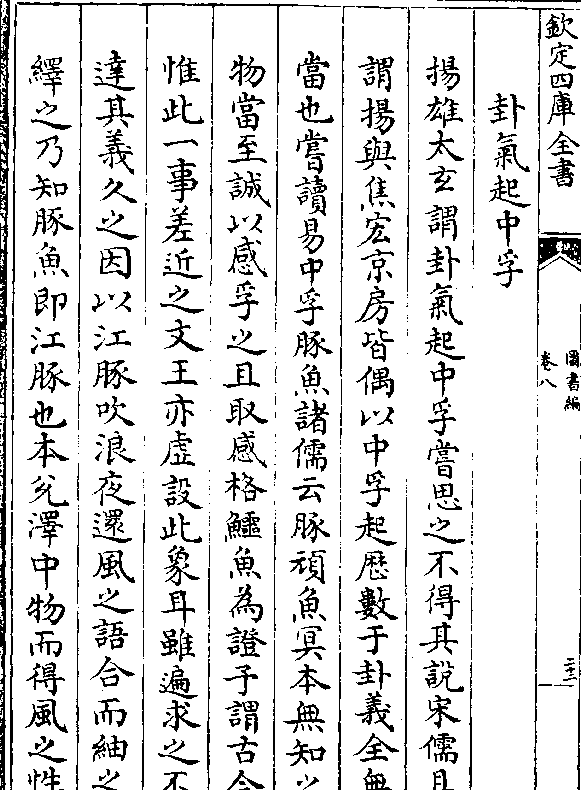 欽定四庫全書
圖書編
卷八
卦氣起中孚
揚雄太玄謂卦氣起中孚嘗思之不得其說宋儒且
謂揚與焦宏京房皆偶以中孚起厯數于卦義全無
當也嘗讀易中孚豚魚諸儒云豚頑魚冥本無知之
物當至誠以感孚之且取感格鱷魚為證予謂古今
惟此一事差近之文王亦虛設此象耳雖遍求之不
達其義久之因以江豚吹浪夜還風之語合而紬之
繹之乃知豚魚即江豚也本兊澤中物而得風之性